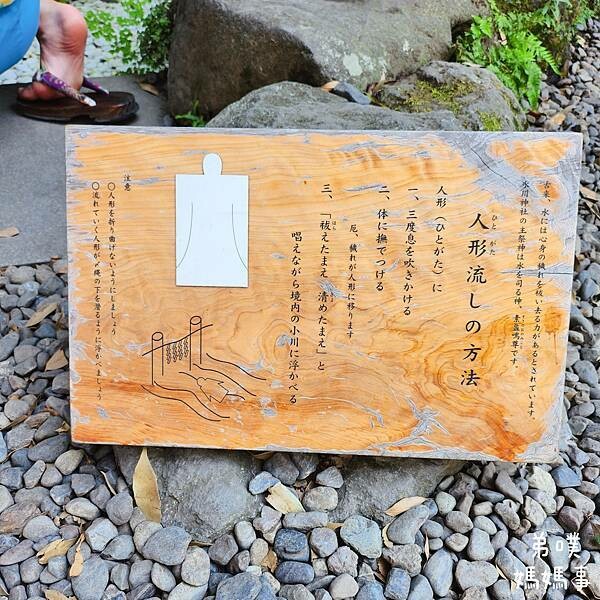 古来、水には心身の穢れを祓い去る力があるとされています。
氷川神社の主祭神は水を司る神、素盞嗚尊です。
人形流しの方法
ひと がた
人形（ひとがた）に
一、三度息を吹きかける
二、体に撫でつける
厄、穢れが人形に移ります
三、「祓えたまえ 清めたまえ」と
唱えながら境内の小川に浮かべる
注意
○人形を折り曲げないようにしましょう
○流れていく人形が〆縄の下を潜るように浮かべましょう
弟噗
媽媽事